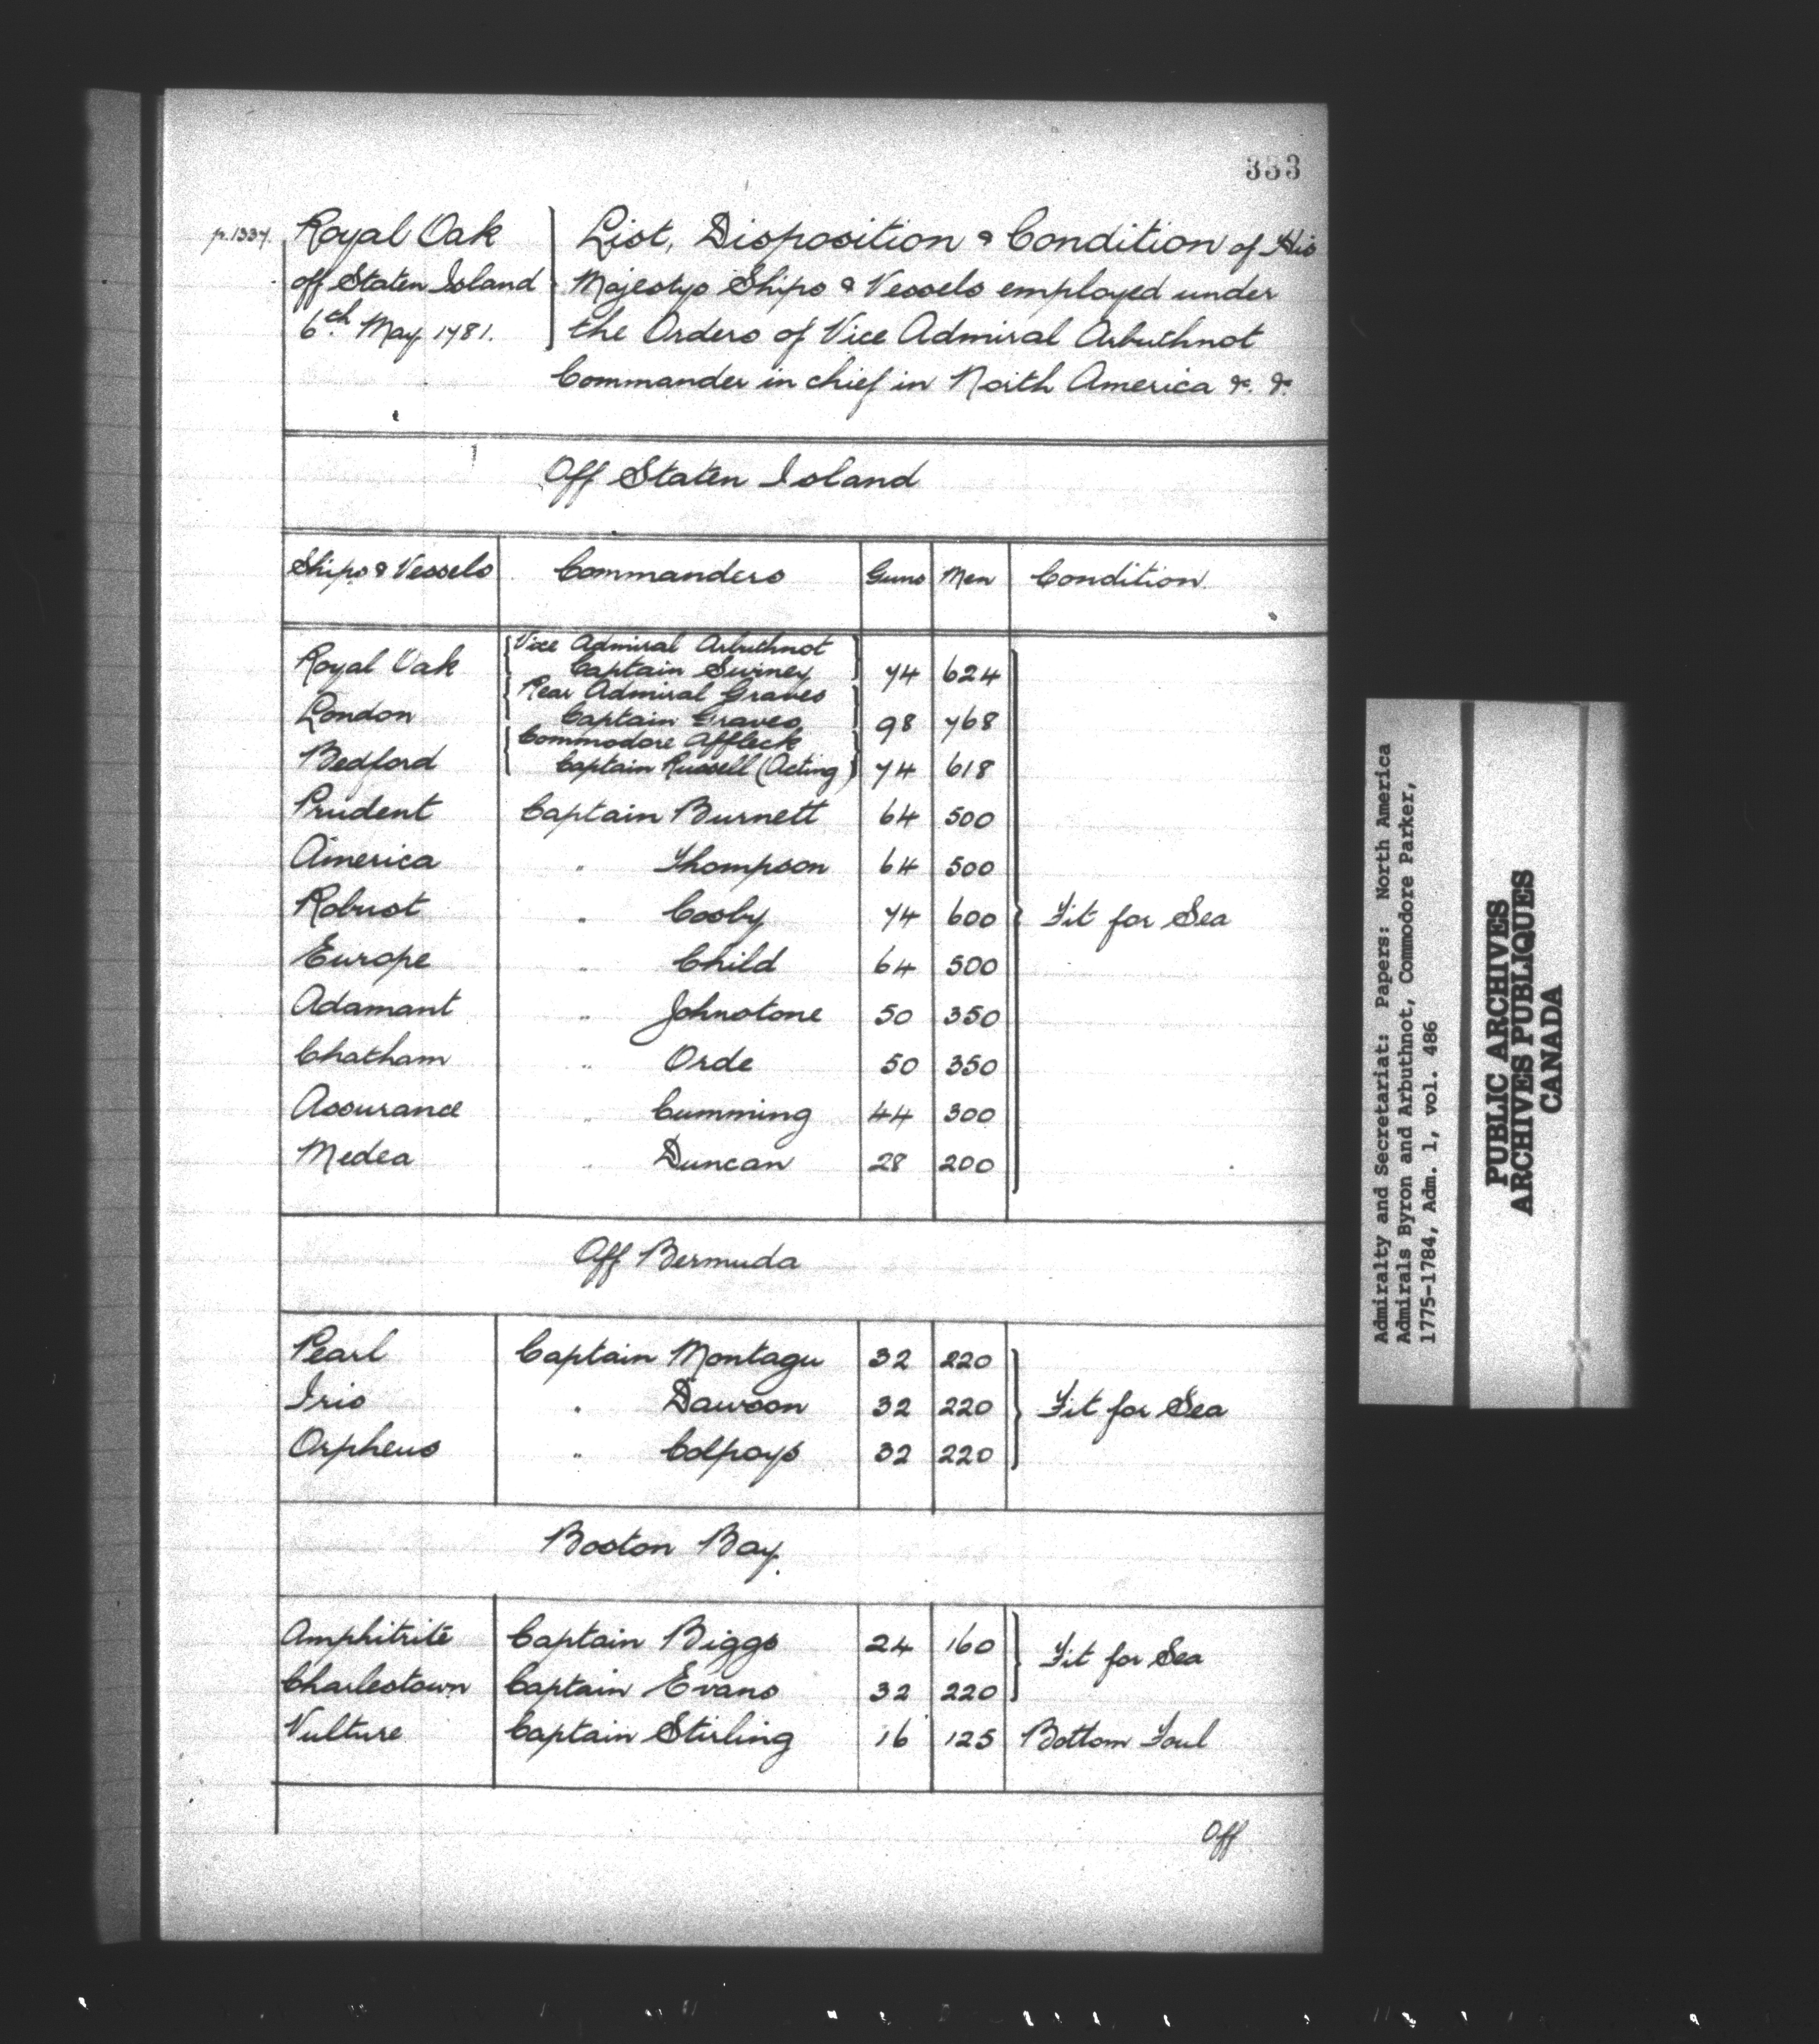 333
p.1334. Royal Oak
off Staten Island
6th May 1781.
List, Disposition & Condition of His
Majestys Ships & Vessels employed under
the Orders of Vice Admiral Arbuthnot
Commander in chief in North America &c. &c.
Off Staten Island
Ships & Vessels Commanders Guns Men Condition.
Vice Admiral Arbuthnot
Royal Oak Captain Swiney 74 624
Rear Admiral Graves
London Captain Graves 98 768
Commodore Affleck
Bedford Captain Russell (Acting) 74 618
Prudent Captain Burnett 64 500
America " Thompson 64 500
Robust " Cosby 74 600 Fit for Sea
Europe " Child 64 500
Adamant " Johnstone 50 350
Chatham " Orde 50 350
Assurance " Cumming 44 300
Medea " Duncan 28 200
Off Bermuda
Pearl Captain Montagu 32 220
Iris " Dawson 32 220 Fit for Sea
Orpheus " Colpoys 32 220
Boston Bay.
Amphitrite Captain Biggs 24 160 Fit for Sea
Charlestown Captain Evans 32 220
Vulture Captain Stirling 16 125 Bottom Foul
Off
Admiralty and Secretariat: Papers: North America
Admirals Byron and Arbuthnot, Commodore Parker,
1775-1784, Adm. 1, vol. 486
PUBLIC ARCHIVES
ARCHIVES PUBLIQUES
CANADA